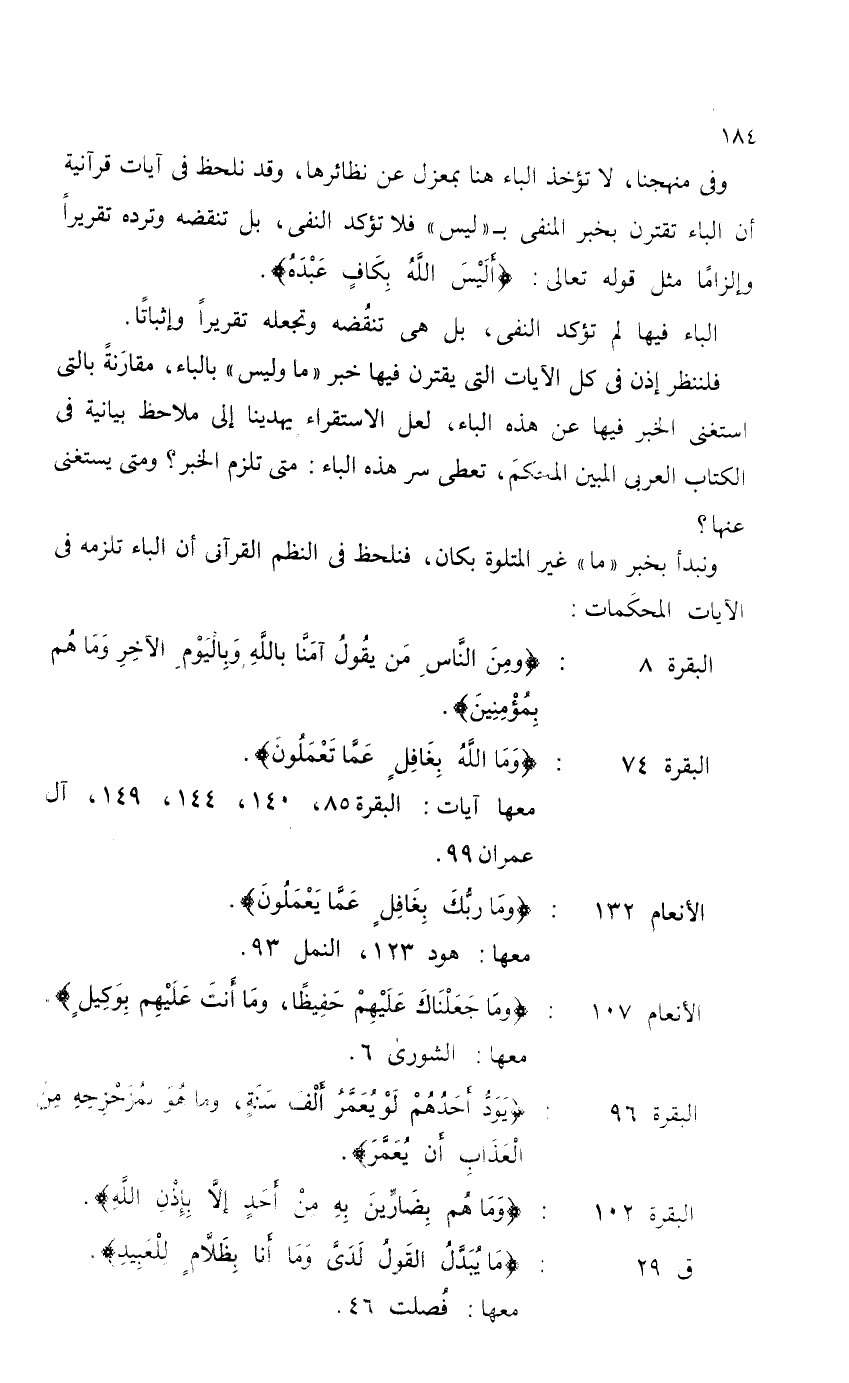 ١٨٤
وفى منهجنا، لا تؤخذ الباء هنا بمعزل عن نظائرها، وقد نلحظ فى آيات قرآنية
أن الباء تقترن بخبر المنفى بـ«ليس» فلا تؤكد النفى، بل تنقضه وترده تقريراً
وإلزامًا مثل قوله تعالى: ﴿أَلَيْسَ اللَّهُ بِكَافٍ عَبْدَهُ﴾.
الباء فيها لم تؤكد النفى، بل هى تنقُضه وتجعله تقريراً وإثباتًا.
فلننظر إذن فى كل الآيات التى يقترن فيها خبر «ما وليس» بالباء، مقارَنةً بالتى
استغنى الخبر فيها عن هذه الباء، لعل الاستقراء يهدينا إلى ملاحظ بيانية فى
الكتاب العربى المبين المحكَم، تعطى سر هذه الباء: متى تلزم الخبر؟ ومتى يستغنى
عنها؟
ونبدأ بخبر «ما» غير المتلوة بكان، فنلحظ فى النظم القرآنى أن الباء تلزمه فى
الآيات المحكَمات:
البقرة ٨ : ﴿ومِنَ النَّاسِ مَن يقُولُ آمَنَّا باللَّهِ وَبِالْيَوْمِ الآخِرِ وَمَا هُم
بِمُؤْمِنِينَ﴾.
البقرة ٧٤ : ﴿وَمَا اللَّهُ بِغَافِلٍ عَمَّا تَعْمَلُونَ﴾.
معها آيات: البقرة ٨٥، ١٤٠، ١٤٤، ١٤٩، آل
عمران ٩٩.
الأنعام ١٣٢ : ﴿ومَا ربُّكَ بِغَافِلٍ عَمَّا يَعْمَلُونَ﴾.
معها: هود ١٢٣، النمل ٩٣.
الأنعام ١٠٧ : ﴿ومَا جَعَلْنَاكَ عَلَيْهِمْ حَفِيظًا، ومَا أَنتَ عَلَيْهِم بِوَكِيلٍ﴾.
معها: الشورىٰ ٦.
البقرة ٩٦ : ﴿يَوَدُّ أَحَدُهُمْ لَوْ يُعَمَّرُ أَلْفَ سَنَةٍ، وما هُوَ بمُزَحْزِحِهِ مِنَ
الْعَذَابِ أَن يُعَمَّرَ﴾.
البقرة ١٠٢ : ﴿وَمَا هُم بِضَارِّينَ بِهِ مِنْ أَحَدٍ إلَّا بِإِذْنِ اللَّهِ﴾.
ق ٢٩ : ﴿مَا يُبَدَّلُ القَولُ لَدَىَّ وَمَا أَنا بِظَلَّامٍ لِلْعَبِيدِ﴾.
معها: فُصلت ٤٦.